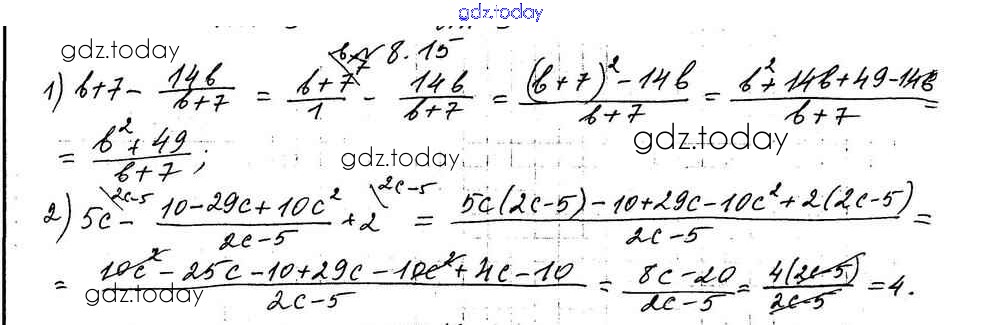 gdz.today
gdz.today
№ 8.15
1) b+7 - 14b/(b+7) = (b+7)/1 - 14b/(b+7) = ((b+7)² - 14b)/(b+7) = (b²+14b+49-14b)/(b+7) =
= (b²+49)/(b+7);
gdz.today
gdz.today
2) 5c - (10-29c+10c²)/(2c-5) + 2 = (5c(2c-5)-10+29c-10c²+2(2c-5))/(2c-5) =
= (10c²-25c-10+29c-10c²+4c-10)/(2c-5) = (8c-20)/(2c-5) = 4(2c-5)/(2c-5) = 4.
gdz.today
gdz.today